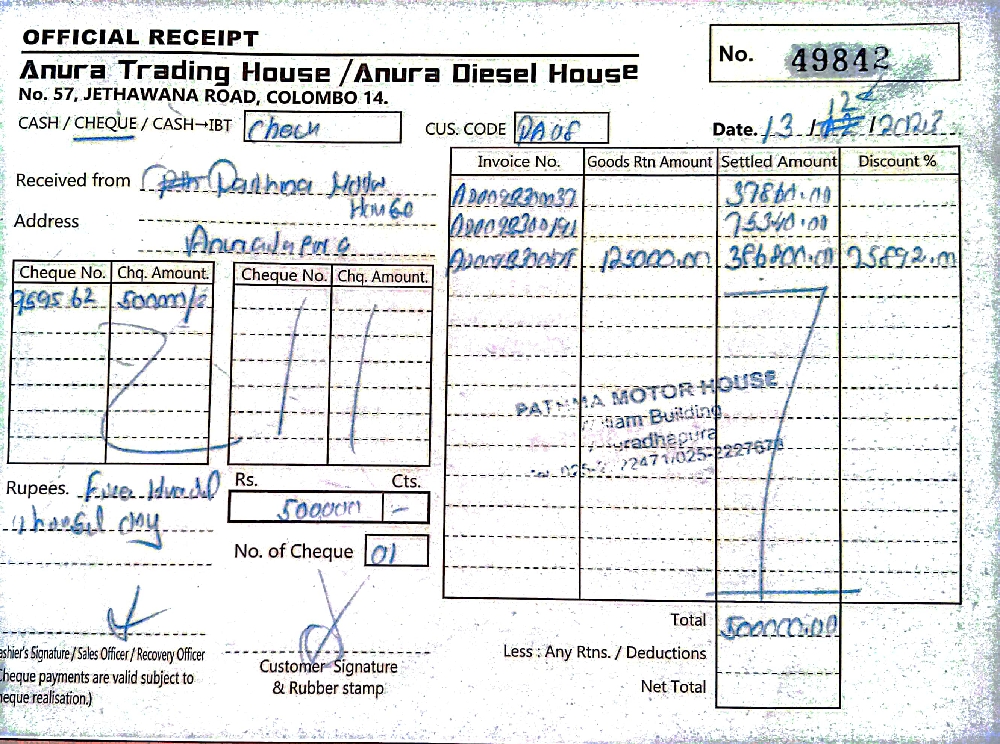 OFFICIAL RECEIPT
No. 49842
Anura Trading House / Anura Diesel House
No. 57, JETHAWANA ROAD, COLOMBO 14.
CASH / CHEQUE / CASH→IBT Check
CUS. CODE PA08
Date. 13 / 12 / 2023
Invoice No. Goods Rtn Amount Settled Amount Discount %
Received from Pathma Motor
House
Address
Anuradapura
37860.00
75340.00
125000.00 386800.00 25892.00
Cheque No. Chq. Amount. Cheque No. Chq. Amount.
959562 500000/=
PATHMA MOTOR HOUSE
Building
Anuradhapura
22471/025-2227670
Rupees. Five Hundred
thousand only
Rs. Cts.
500000 -
No. of Cheque 01
Total 500000.00
Less : Any Rtns. / Deductions
Net Total
ashier's Signature / Sales Officer / Recovery Officer
heque payments are valid subject to
heque realisation.)
Customer Signature
& Rubber stamp